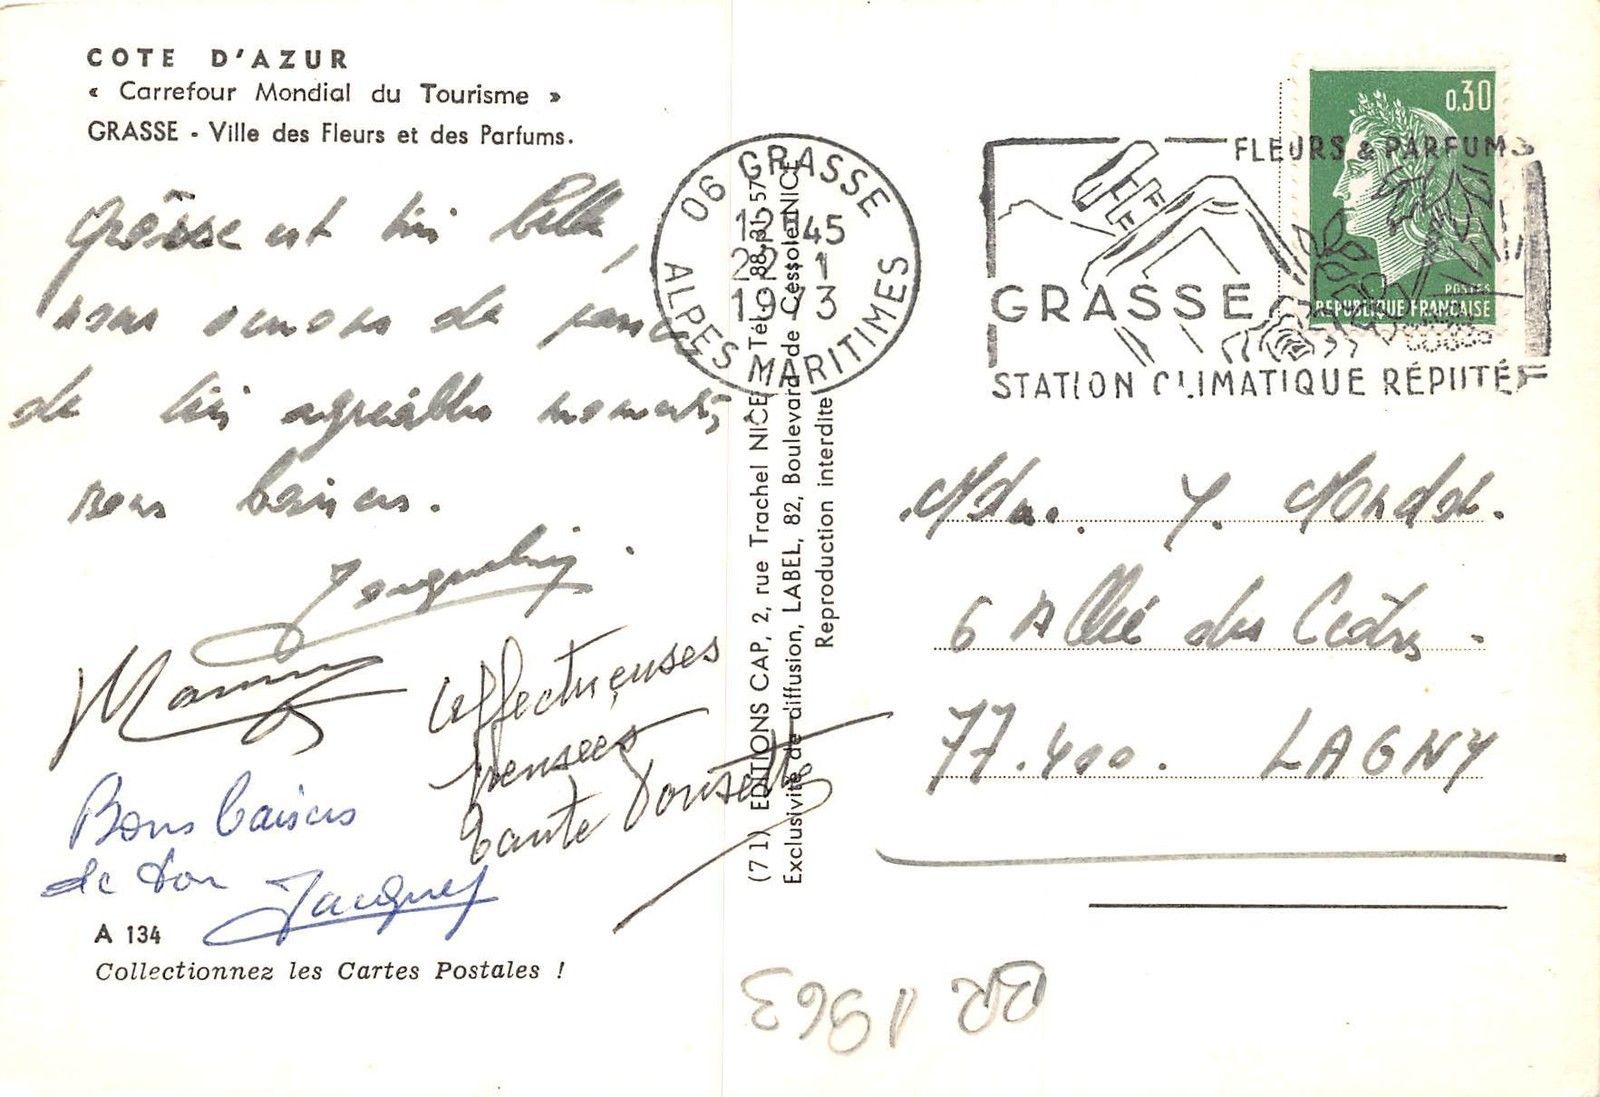 COTE D'AZUR
« Carrefour Mondial du Tourisme »
GRASSE - Ville des Fleurs et des Parfums.
Grâsse est très belle,
nous venons de passer
de très agréables moments,
bons baisers.
Jacqueline
Mamy
affectueuses
pensées
tante
Bons baisers
de ton Jacques
A 134
Collectionnez les Cartes Postales !
(71) EDITIONS CAP, 2, rue Trachel NICE Tél. 88.31.57
Exclusivité de diffusion, LABEL, 82, Boulevard de Cessole NICE
Reproduction interdite
06 GRASSE
12H45
22-1
1973
ALPES MARITIMES
FLEURS & PARFUMS
GRASSE
STATION CLIMATIQUE RÉPUTÉE
0,30
POSTES
REPUBLIQUE FRANÇAISE
Mdme. Y.
6 Allée des Cèdres.
77.400. LAGNY
BR 1963